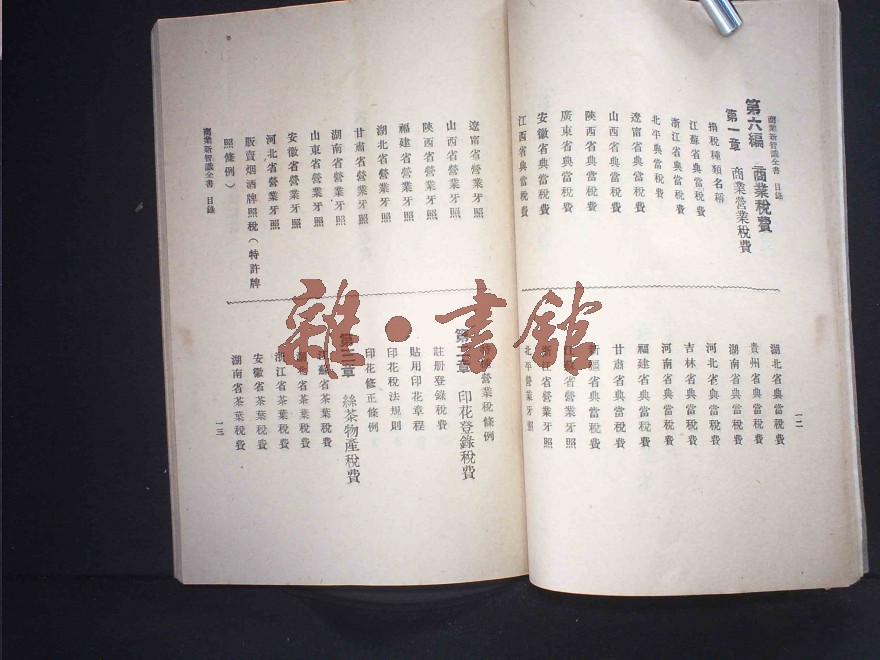 商業新智識全書 目錄
第六編 商業稅費
第一章 商業營業稅費
捐稅種類名稱
江蘇省典當稅費
浙江省典當稅費
北平典當稅費
遼甯省典當稅費
山西省典當稅費
陝西省典當稅費
廣東省典當稅費
安徽省典當稅費
江西省典當稅費
湖北省典當稅費
貴州省典當稅費
湖南省典當稅費
河北省典當稅費
吉林省典當稅費
河南省典當稅費
福建省典當稅費
甘肅省典當稅費
新疆省典當稅費
江蘇省營業牙照
浙江省營業牙照
北平營業牙照
一二
遼甯省營業牙照
山西省營業牙照
陝西省營業牙照
福建省營業牙照
湖北省營業牙照
甘肅省營業牙照
湖南省營業牙照
山東省營業牙照
安徽省營業牙照
河北省營業牙照
販賣烟酒牌照稅(特許牌
照條例)
營業稅條例
第二章 印花登錄稅費
註册登錄稅費
貼用印花章程
印花稅法規則
印花修正條例
第三章 絲茶物產稅費
江蘇省茶葉稅費
湖北省茶葉稅費
浙江省茶葉稅費
安徽省茶葉稅費
湖南省茶葉稅費
商業新智識全書 目錄
一三
雜·書館